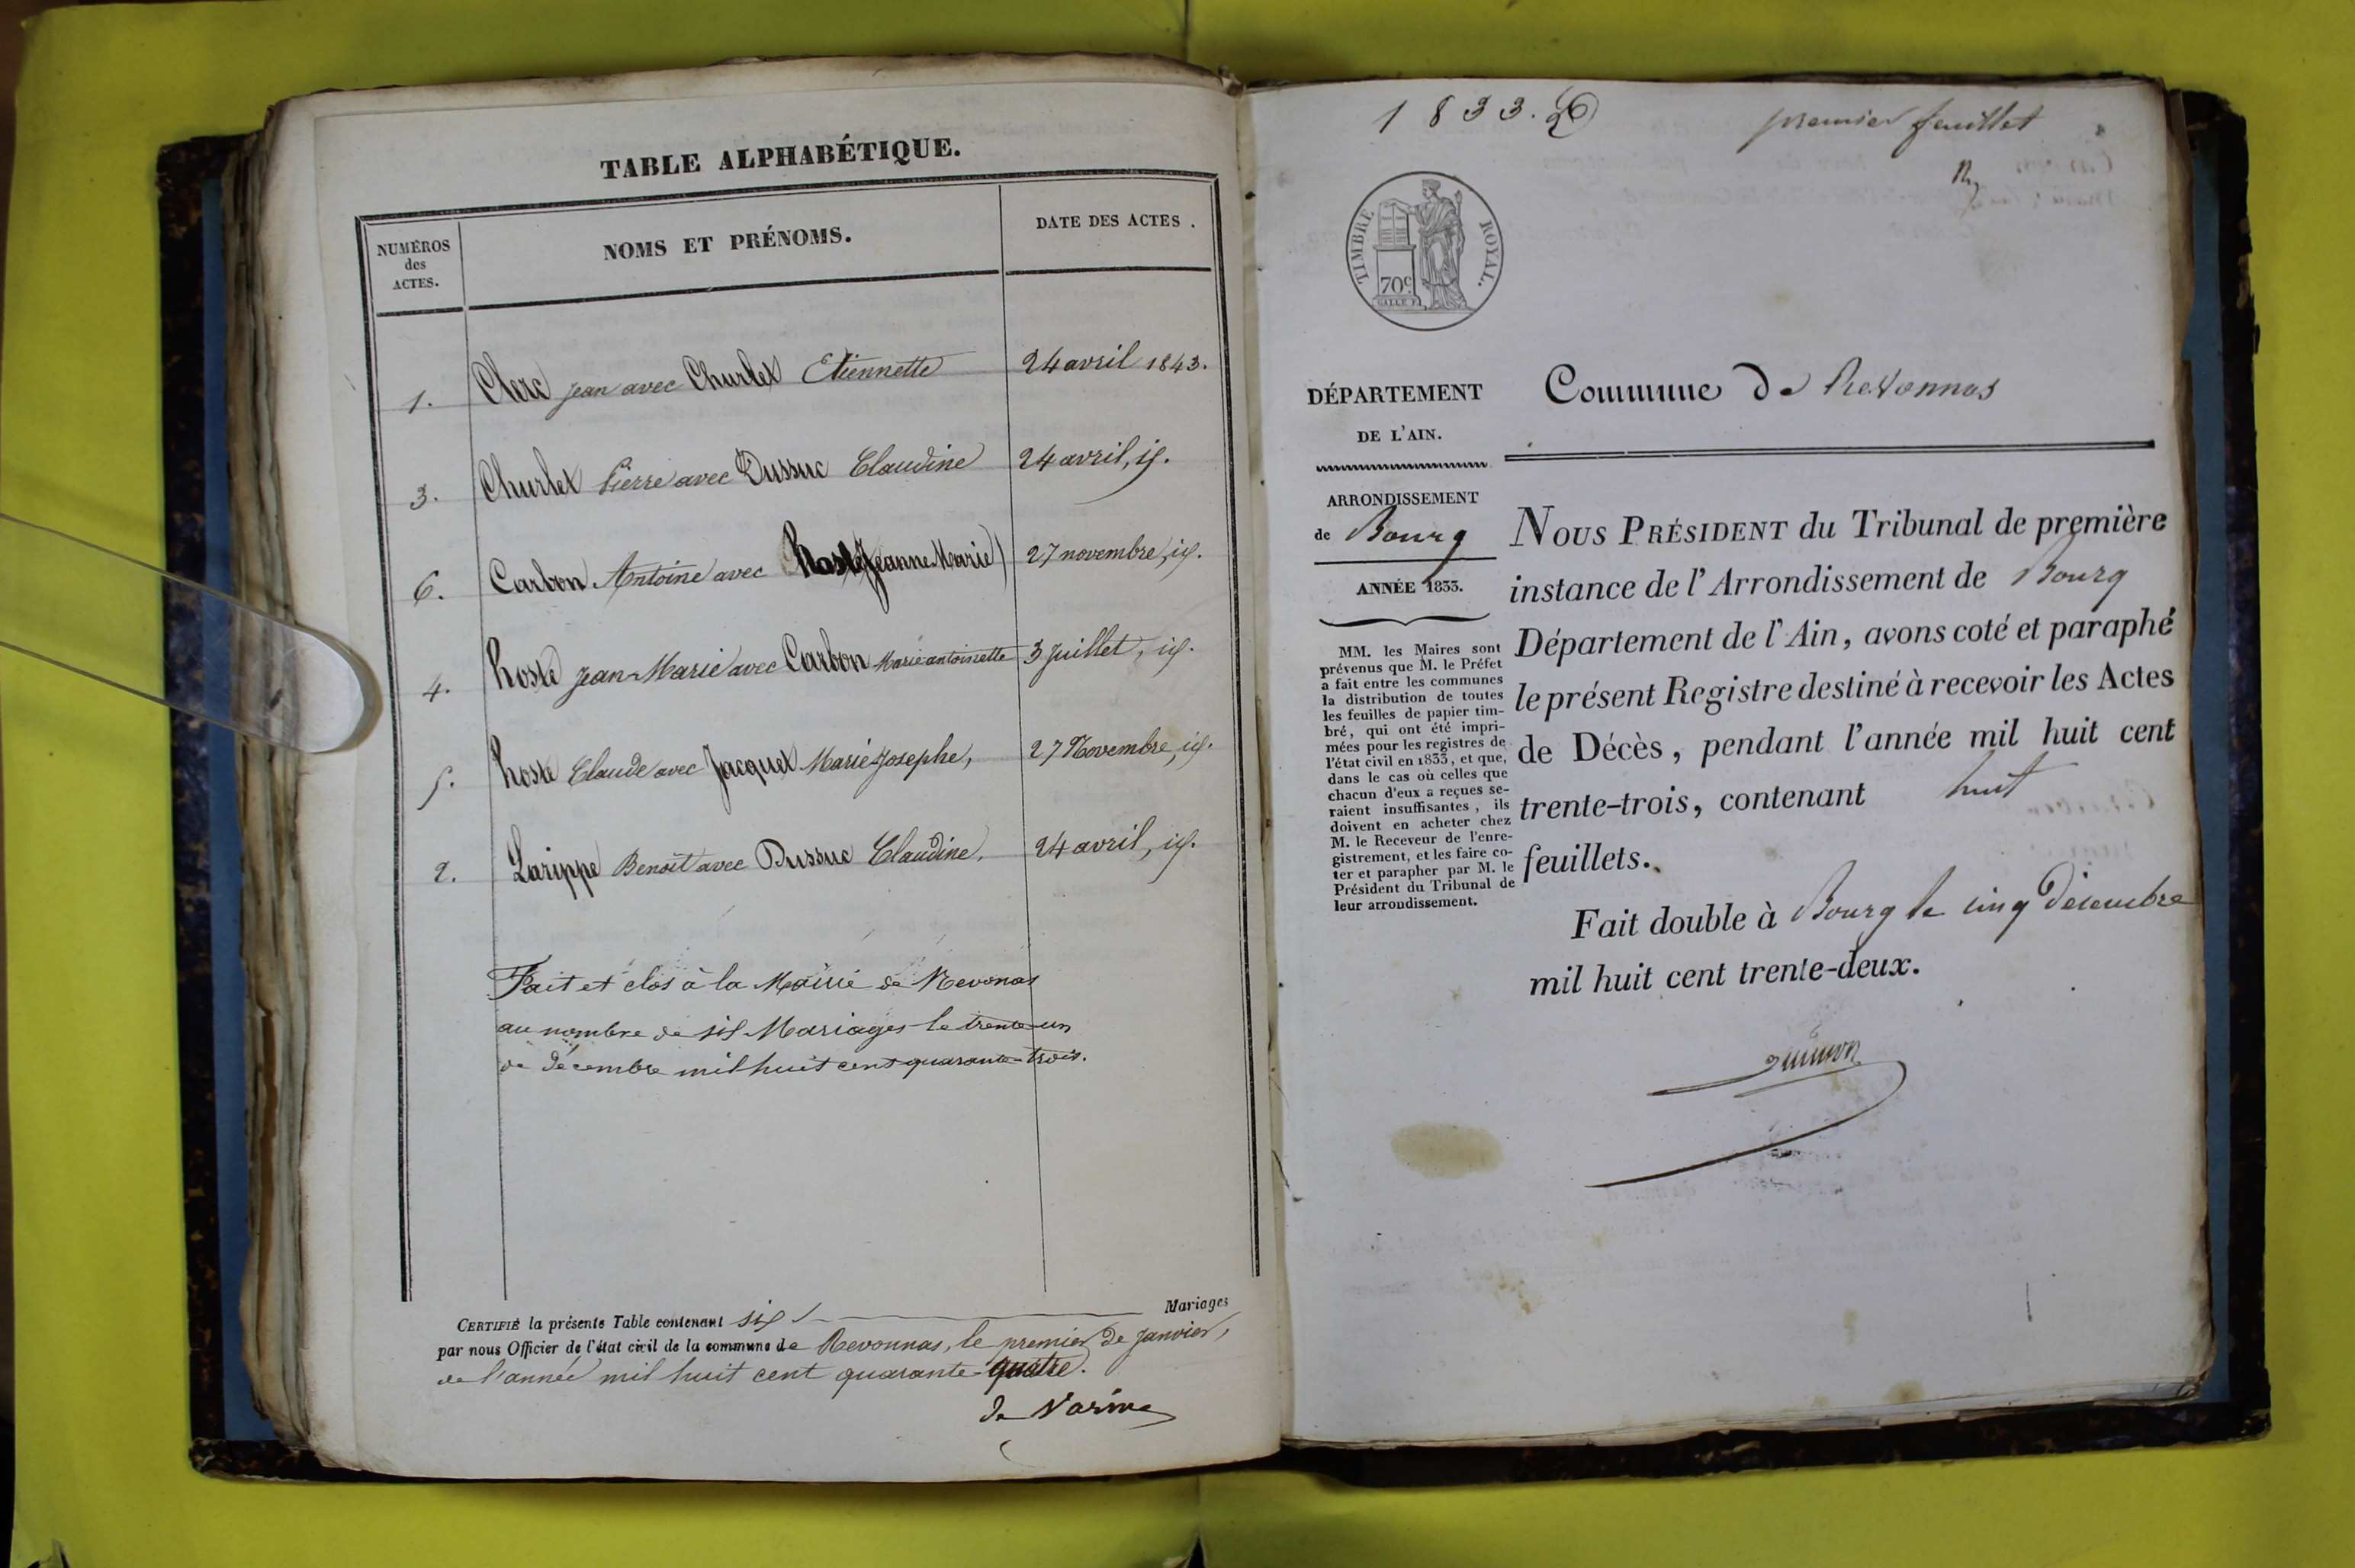 TABLE ALPHABÉTIQUE.
NUMÉROS
des
ACTES.
NOMS ET PRÉNOMS.
DATE DES ACTES.
1. Clerc Jean avec Churlet Etiennette 24 avril 1843.
3. Churlet Pierre avec Dussuc Claudine 24 avril, id.
6. Carbon Antoine avec Roste Jeanne Marie 27 novembre, id.
4. Roste Jean-Marie avec Carbon Marie antoinette 3 Juillet, id.
5. Roste Claude avec Jacquet Marie Josephe, 27 Novembre, id.
2. Larippe Benoit avec Dussuc Claudine, 24 avril, id.
Fait et clos à la Mairie de Revonas
au nombre de six Mariages le trente-un
de décembre mil huit cent quarante-trois.
CERTIFIÉ la présente Table contenant six Mariages
par nous Officier de l'état civil de la commune de Revonnas, le premier de Janvier,
de l'année mil huit cent quarante-quatre.
1833. D
premier feuillet
TIMBRE ROYAL.
70c
DÉPARTEMENT
DE L'AIN.
Commune de Revonnas
ARRONDISSEMENT
de Bourg
ANNÉE 1833.
MM. les Maires sont
prévenus que M. le Préfet
a fait entre les communes
la distribution de toutes
les feuilles de papier tim-
bré, qui ont été impri-
mées pour les registres de
l'état civil en 1833, et que,
dans le cas où celles que
chacun d'eux a reçues se-
raient insuffisantes, ils
doivent en acheter chez
M. le Receveur de l'enre-
gistrement, et les faire co-
ter et parapher par M. le
Président du Tribunal de
leur arrondissement.
NOUS PRÉSIDENT du Tribunal de première
instance de l'Arrondissement de Bourg
Département de l'Ain, avons coté et paraphé
le présent Registre destiné à recevoir les Actes
de Décès, pendant l'année mil huit cent
trente-trois, contenant huit
feuillets.
Fait double à Bourg le cinq Décembre
mil huit cent trente-deux.